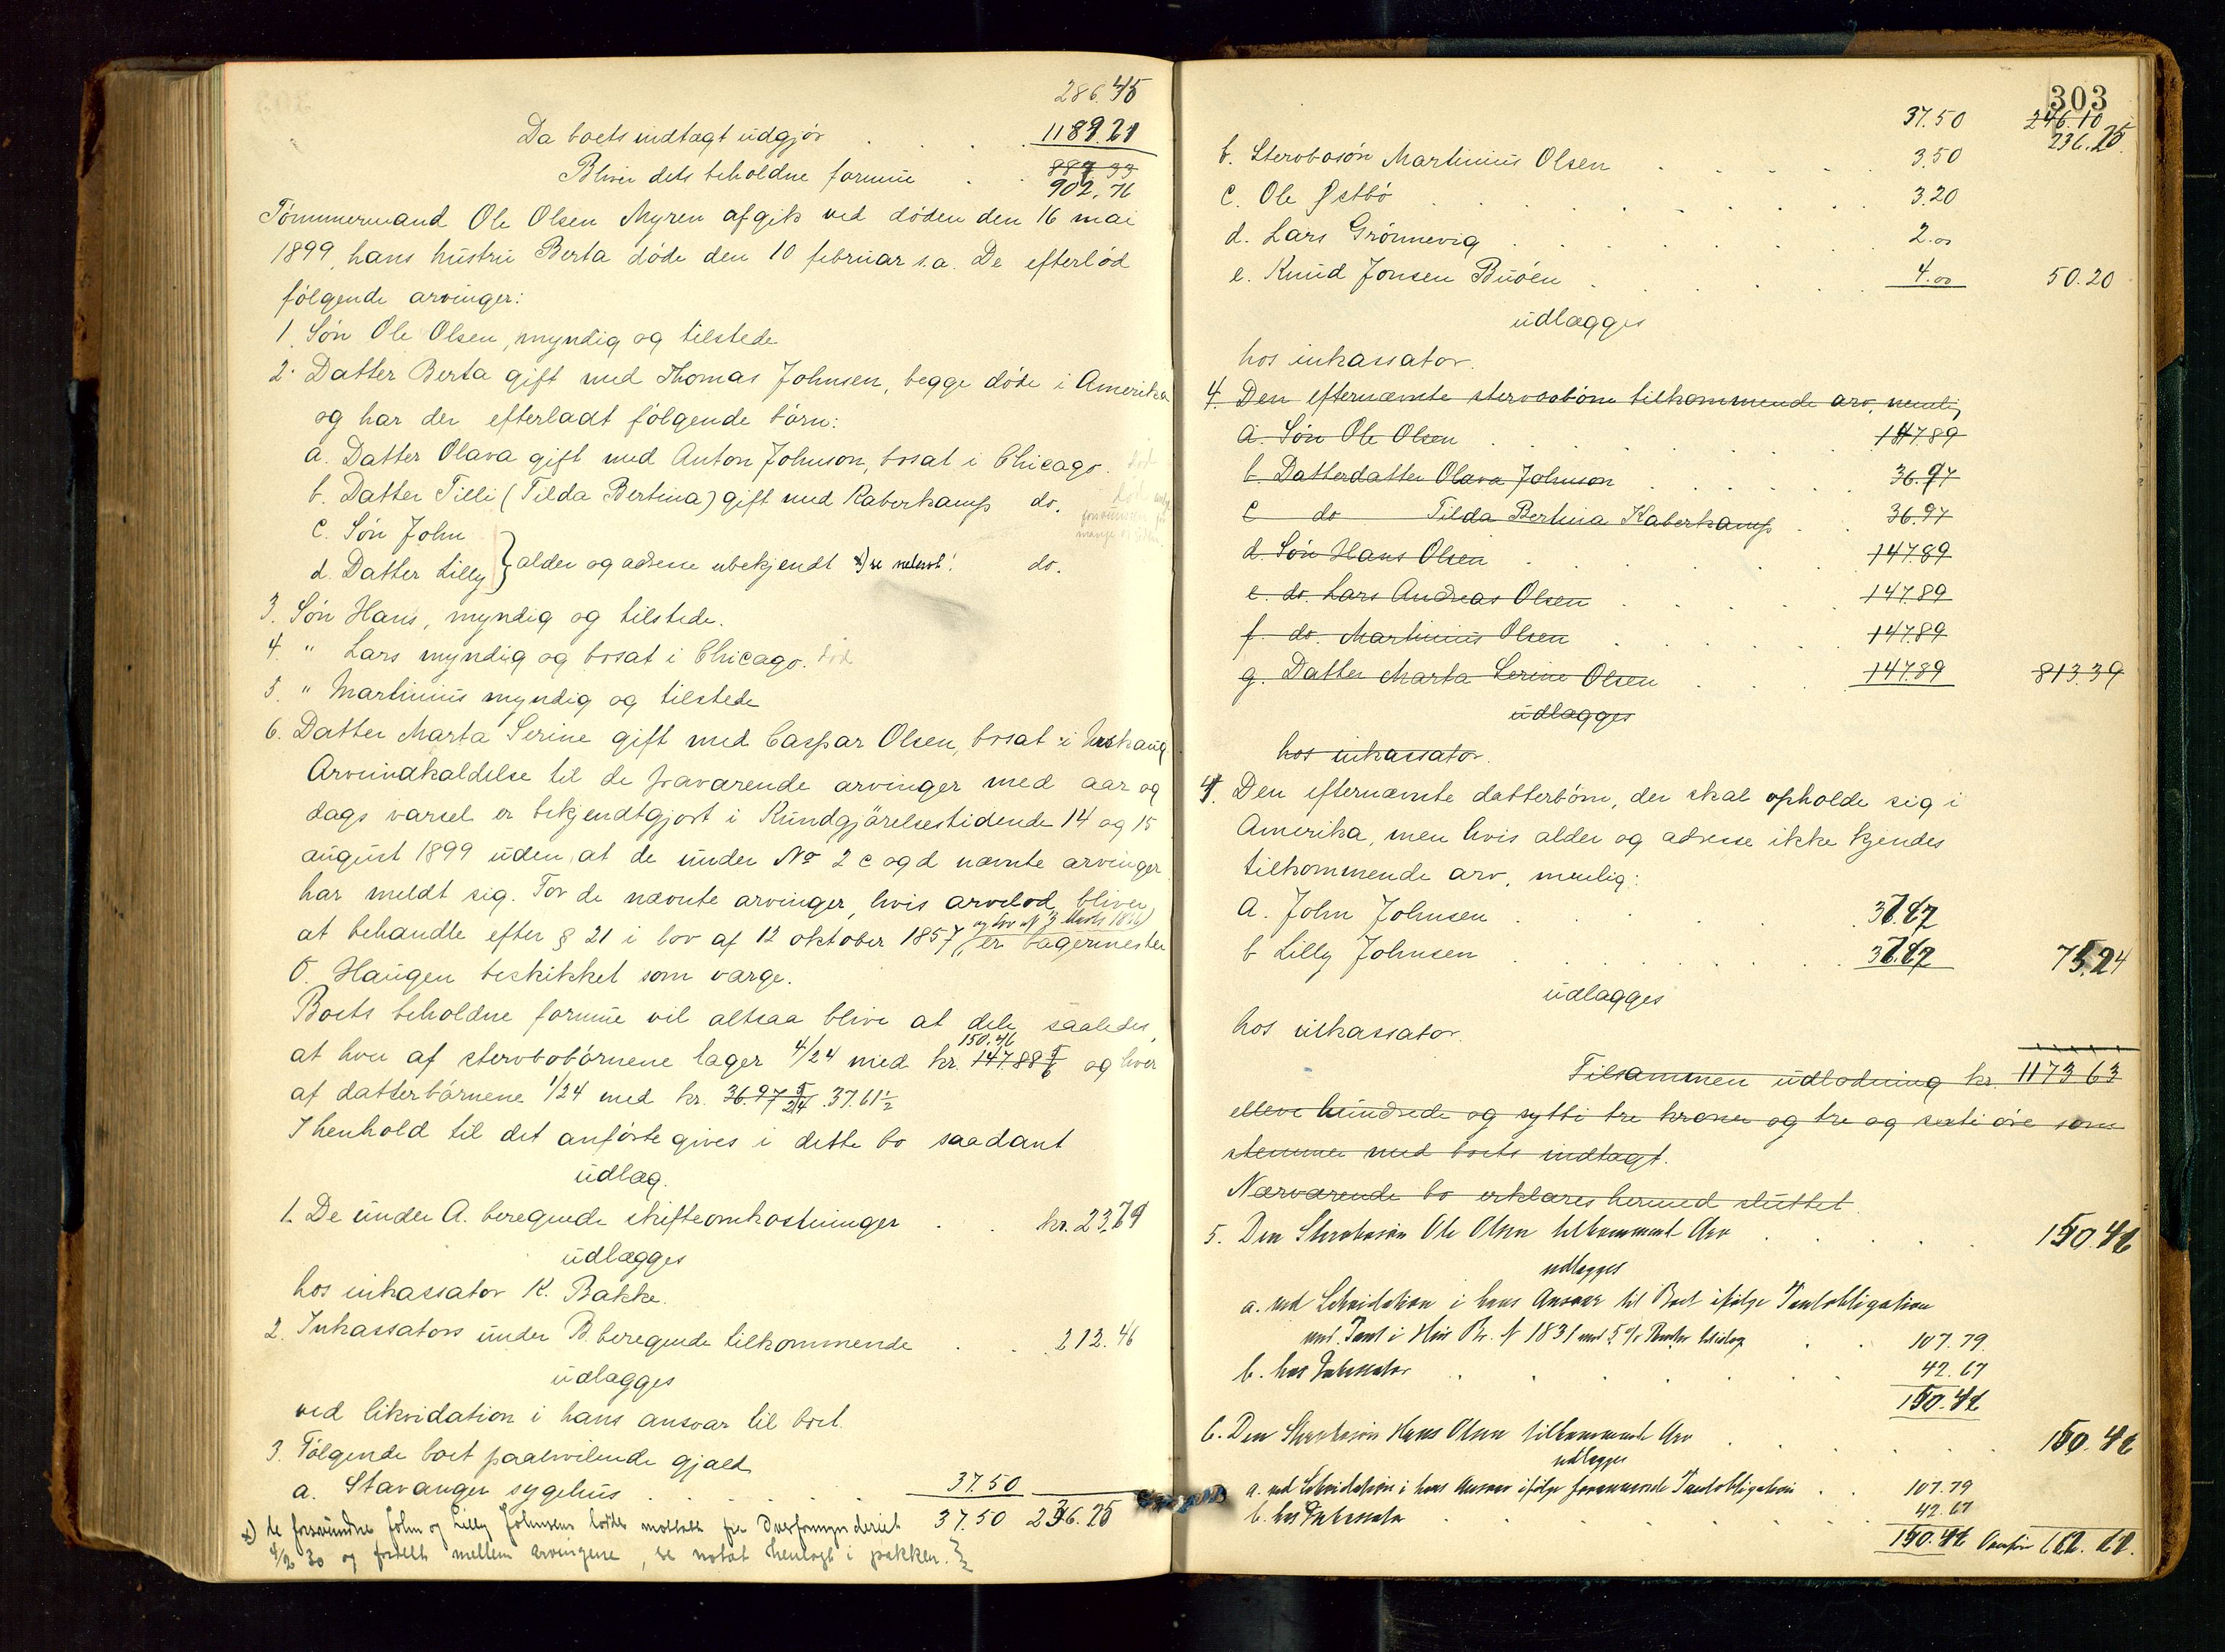 286.45
Da boets indtægt udgjør . . . . 1189.21
Bliver dets beholdne formue . . 887 33
902.76
Tömmermand Ole Olsen Myren afgik ved døden den 16 mai
1899, hans hustru Berta døde den 10 februar s.a. De efterlod
følgende arvinger:
1. Søn Ole Olsen, myndig og tilstede
2. Datter Berta gift med Thomas Johnsen, begge døde i Amerika
og har der efterladt følgende børn:
a. Datter Olava gift med Anton Johnson, bosat i Chicago. død
b. Datter Tilli (Tilda Bertina) gift med Kaberkamp do.
c. Søn John
d. Datter Lilly } alder og adresse ubekjendt x) se nederst! do.
3. Søn Hans, myndig og tilstede.
4. " Lars myndig og bosat i Chicago. død
5. " Martinius myndig og tilstede
6. Datter Marta Serine gift med Caspar Olsen, bosat i
Arveindkaldelse til de fraværende arvinger med aar og
dags varsel er bekjendtgjort i Kundgjörelsestidende 14 og 15
august 1899 uden at de under No 2 c og d nævnte arvinger
har meldt sig. For de nævnte arvinger, hvis arvelod bliver
at behandle efter § 21 i lov af 12 oktober 1857, er bagermester
O. Haugen beskikket som værge.
Boets beholdne formue vil altsaa blive at dele saaledes,
150.46
at hver af stervbobørnene tager 4/24 med kr. 147.88 5/6 og hver
af datterbørnene 1/24 med kr. 36.97 5/24 37.61½
I henhold til det anførte gives i dette bo saadant
udlæg.
1. De under A. beregnede skifteomkostninger . . kr. 23.79
udlægges
hos inkassator K. Bakke.
2. Inkassators under B. beregnede tilkommende . . 212.46
udlægges
ved likvidation i hans ansvar til boet.
3. Følgende boet paahvilende gjæld
a. Stavanger sygehus . . . . . 37.50
37.50 236.25
x) de forsvundne John og Lilly Johnsens lodder mottatt fra Overformynderiet
4/2 30 og fordelt mellem arvingene, se notat henlagt i pakken.
303
37.50 246.10
236.25
b. Stervbosøn Martinius Olsen . . . . . 3.50
c. Ole Østbø . . . . . . . . 3.20
d. Lars Grønnevig . . . . . . 2.00
e. Knud Jonsen Buøen . . . . . . 4.00 50.20
udlægges
hos inkassator.
4. Den efternævnte stervbobørn tilkommende arv, nemlig
a. Søn Ole Olsen . . . . . . 147.89
b. Datterdatter Olava Johnson . . . . . 36.97
c do Tilda Bertina Kaberkamp . . 36.97
d. Søn Hans Olsen . . . . . . 147.89
e. do. Lars Andreas Olsen . . . . . 147.89
f. do. Martinius Olsen . . . . . 147.89
g. Datter Marta Serine Olsen . . . . 147.89 813.39
udlægges
hos inkassator.
4. Den efternævnte datterbørn, der skal opholde sig i
Amerika, men hvis alder og adresse ikke kjendes
tilkommende arv, nemlig:
a. John Johnsen . . . . . 37.62
b Lilly Johnsen . . . . . . . 37.62 75.24
udlægges
hos inkassator.
Tilsammen udlodning kr. 1173 63
elleve hundrede og sytti tre kroner og tre og sexti øre som
stemmer med boets indtægt.
Nærværende bo erklæres hermed sluttet.
5. Den Stervbosøn Ole Olsen tilkommende Arv . . . . . 150.46
udlægges
a. ved Likvidation i hans Ansvar til Boet ifølge Pantobligation
med Pant i Hus Br. N 1831 med 5% Renter . . 107.79.
b. hos Inkassator . . . . . . . 42.67
150.46
6. Den Stervbosøn Hans Olsen tilkommende Arv . . . . . . 150.46
udlægges
a. ved Likvidation i hans Ansvar ifølge Pantobligation . . 107.79
b. hos Inkassator . . . . . . . 42.67
150.46